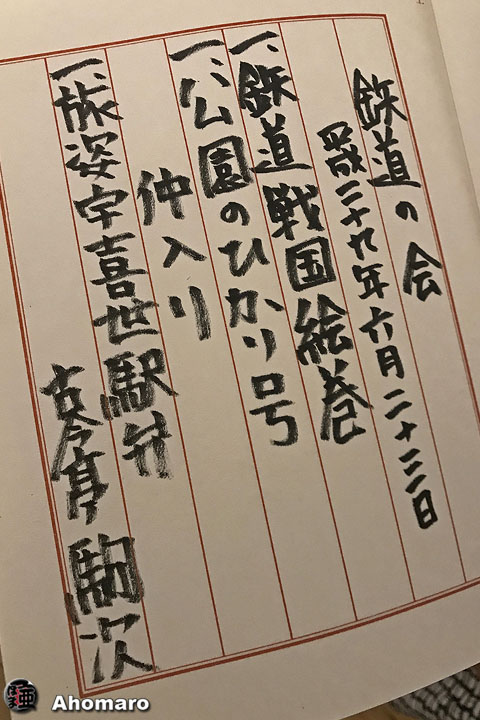 鉄道の会
平成二十九年六月二十三日
一、鉄道戦国絵巻
一、公園のひかり号
仲入り
一、旅姿宇喜世駅弁
古今亭駒次
Ahomaro